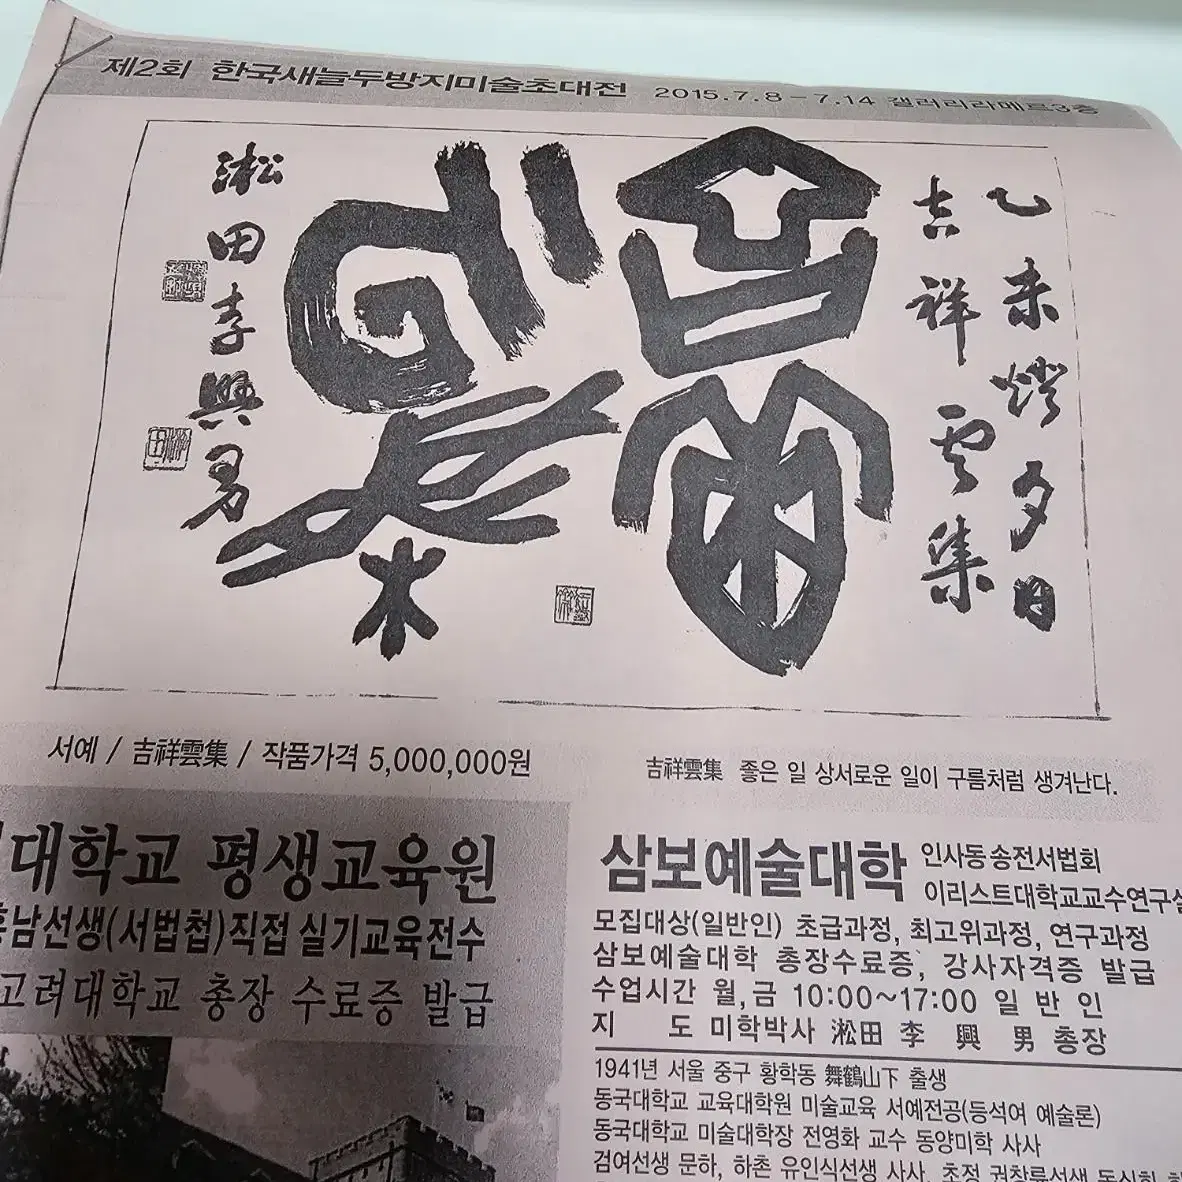 제2회 한국새늘두방지미술초대전 2015.7.8-7.14 갤러리라메르3층
乙未燈夕日
吉祥雲集
淞田李興男
서예 / 吉祥雲集 / 작품가격 5,000,000원
吉祥雲集 좋은 일 상서로운 일이 구름처럼 생겨난다.
대학교 평생교육원
흥남선생(서법첩)직접 실기교육전수
고려대학교 총장 수료증 발급
삼보예술대학 인사동송전서법회
이리스트대학교교수연구실
모집대상(일반인) 초급과정, 최고위과정, 연구과정
삼보예술대학 총장수료증, 강사자격증 발급
수업시간 월,금 10:00~17:00 일 반 인
지 도 미학박사 淞田 李 興 男 총장
1941년 서울 중구 황학동 舞鶴山下 출생
동국대학교 교육대학원 미술교육 서예전공(등석여 예술론)
동국대학교 미술대학장 전영화 교수 동양미학 사사
검여선생 문하, 하촌 유인식선생 사사, 초정 권창륜선생